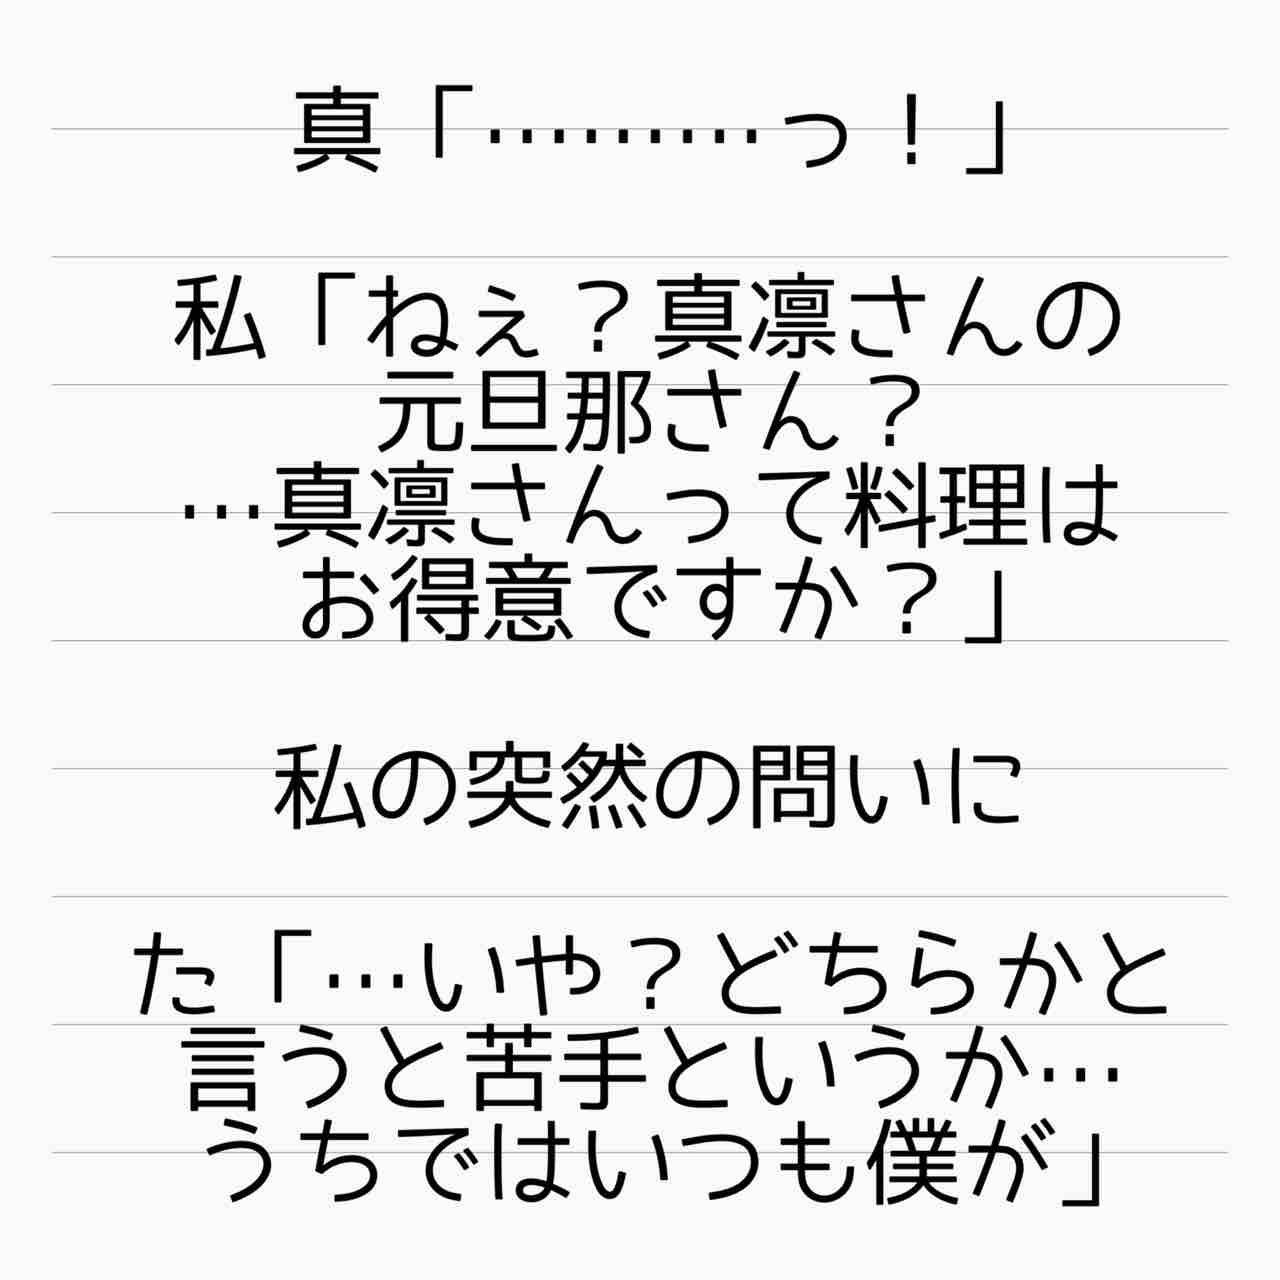 真「………っ！」
私「ねぇ？真凛さんの
元旦那さん？
…真凛さんって料理は
お得意ですか？」
私の突然の問いに
た「…いや？どちらかと
言うと苦手というか…
うちではいつも僕が」